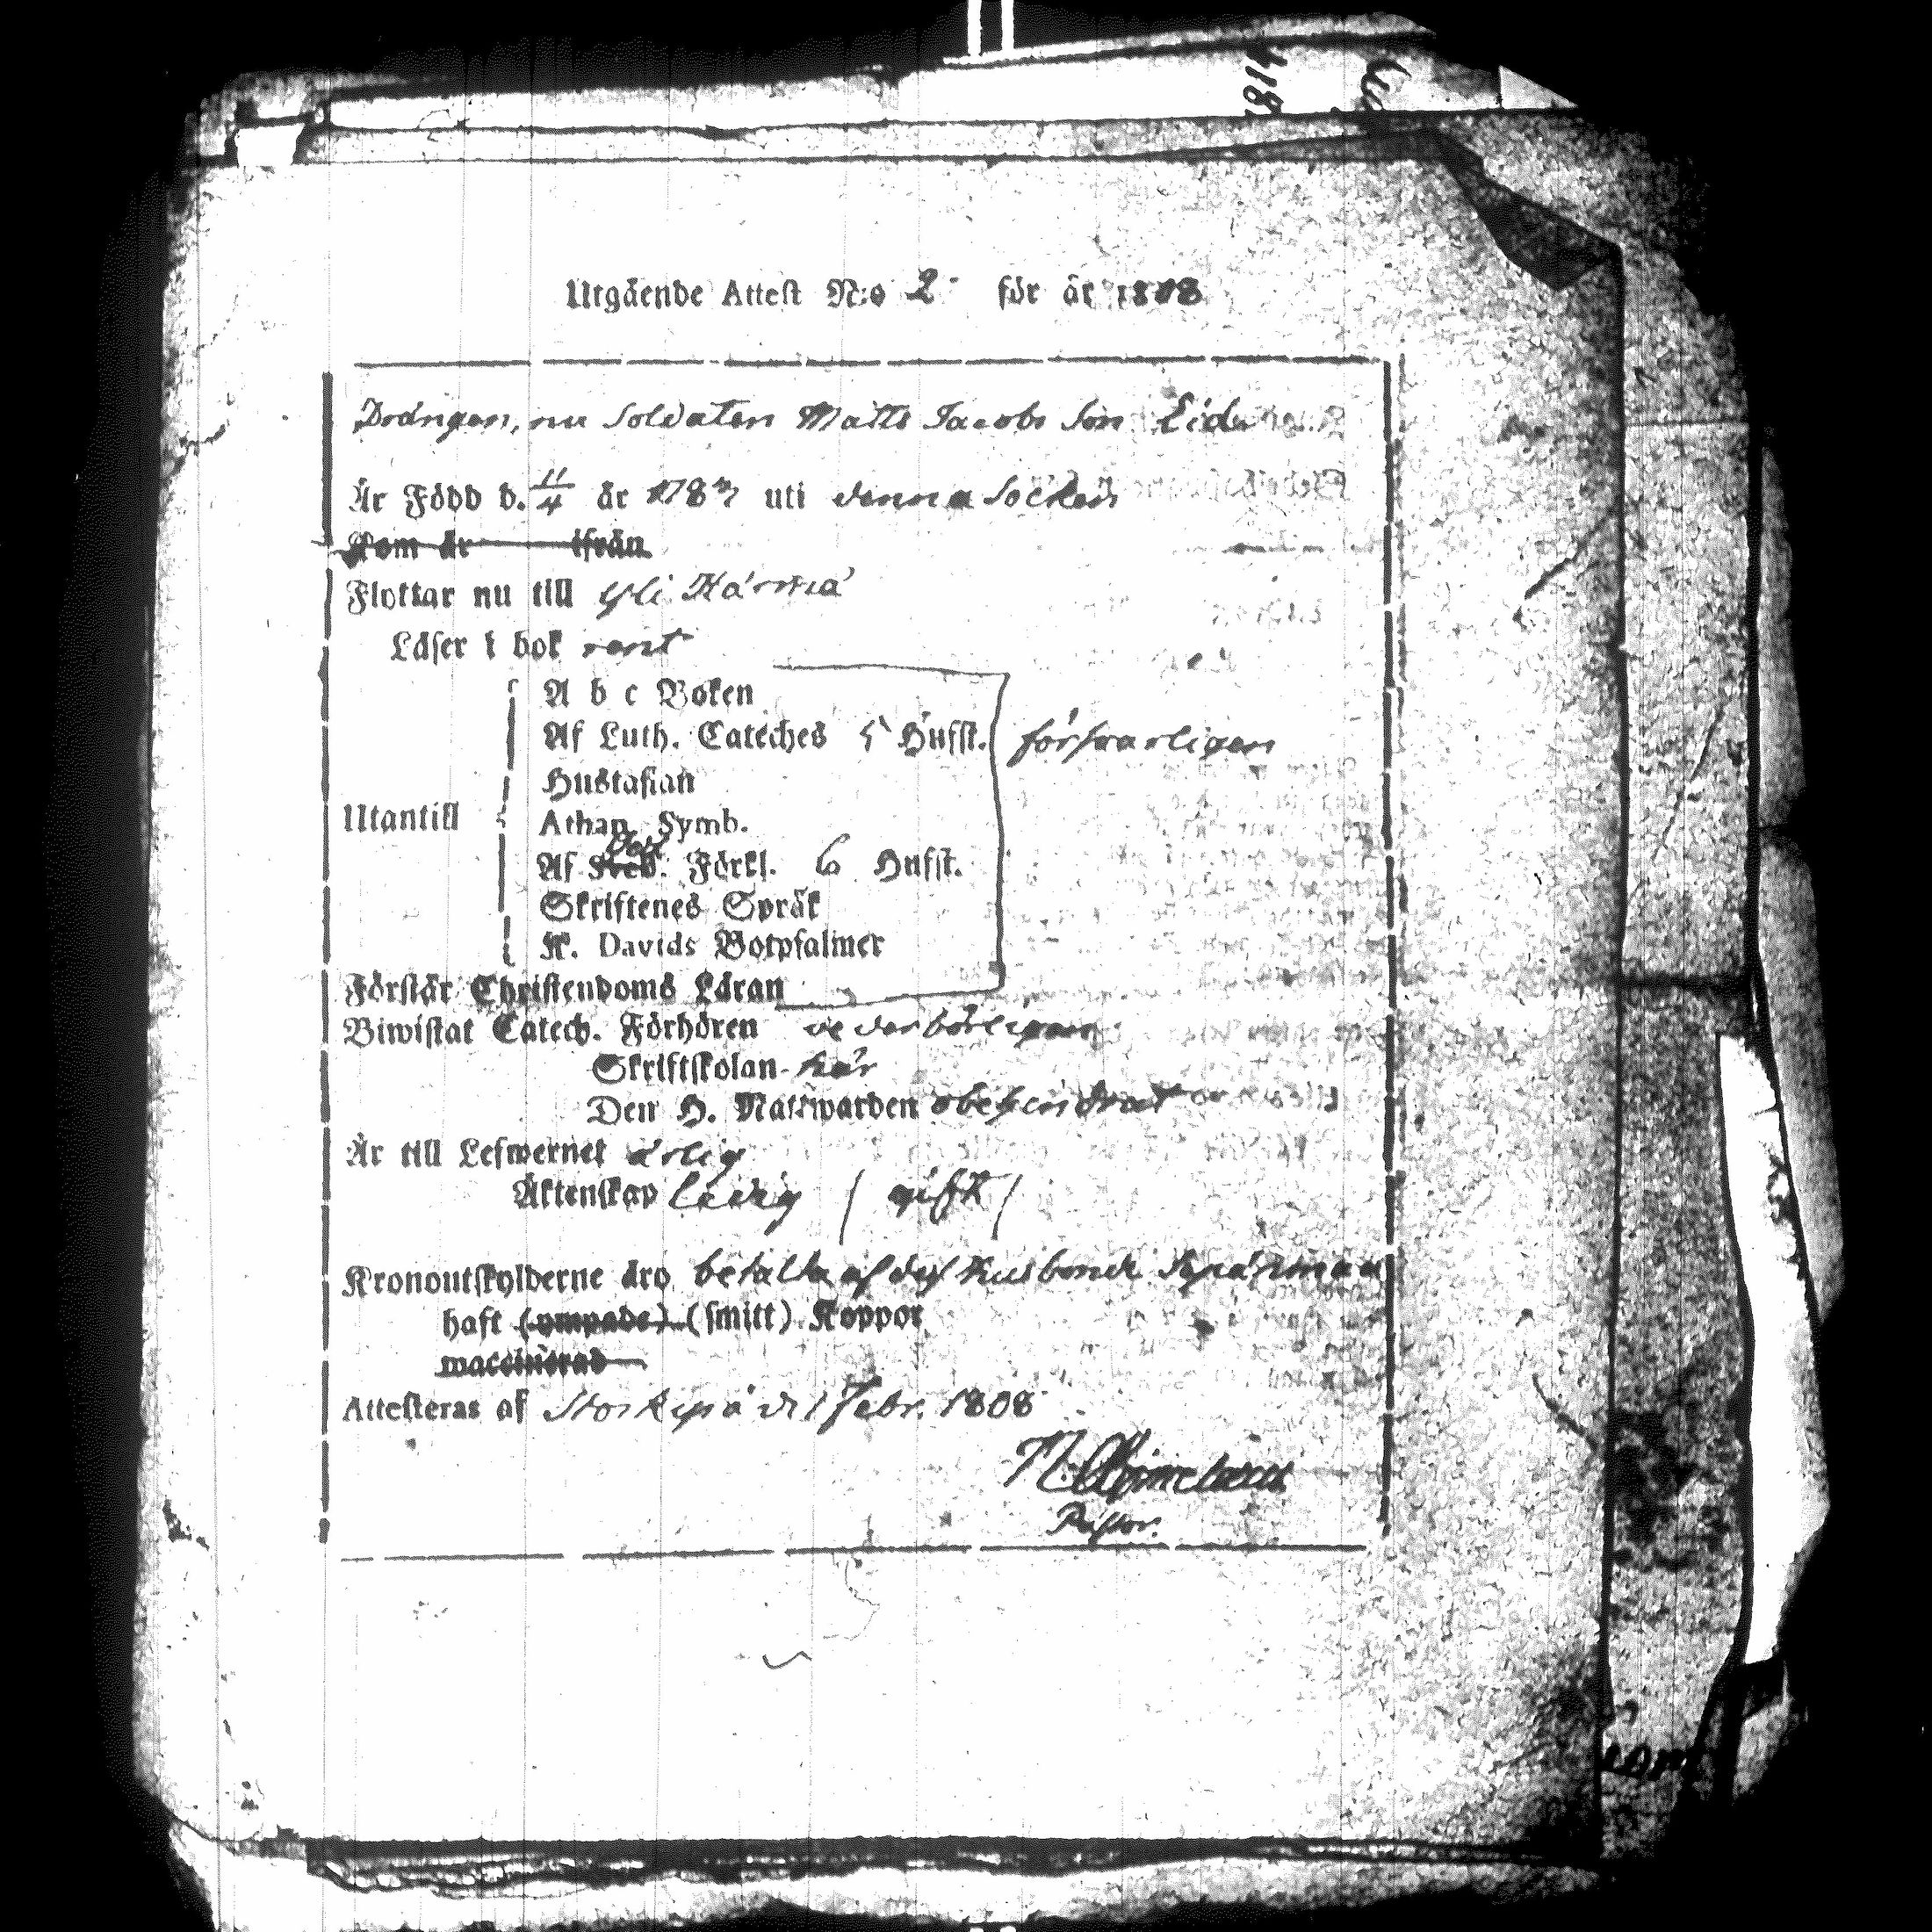 Utgående Attest N:o 2 för år 1808
Drängen, nu Soldaten Matts Jacobs Son
Är Född d. 11/4 år 178 uti denna Socken
Kom år ifrån
Flyttar nu till Yli Härmä
Läser i bok rent
A b c Boken
Af Luth. Cateches 5 Hufst. försvarligen
Hustaflan
Utantill
Athan. Symb.
Af Sveb. Förkl. 6 Hufst.
Skriftenes Språk
K. Davids Botpsalmer
Förstår Christendoms Läran
Biwistat Catech. Förhören vederbörligen
Skriftskolan här
Den H. Nattwarden obehindrat
Är till Lefwernet ärlig
Äktenskap ledig / gift /
Kronoutskylderne äro betalta af dess Husbonde
haft (ympade) (smitt) Koppor
waccinerad
Attesteras af Storkyro d. 1 Febr. 1808
Pastor.